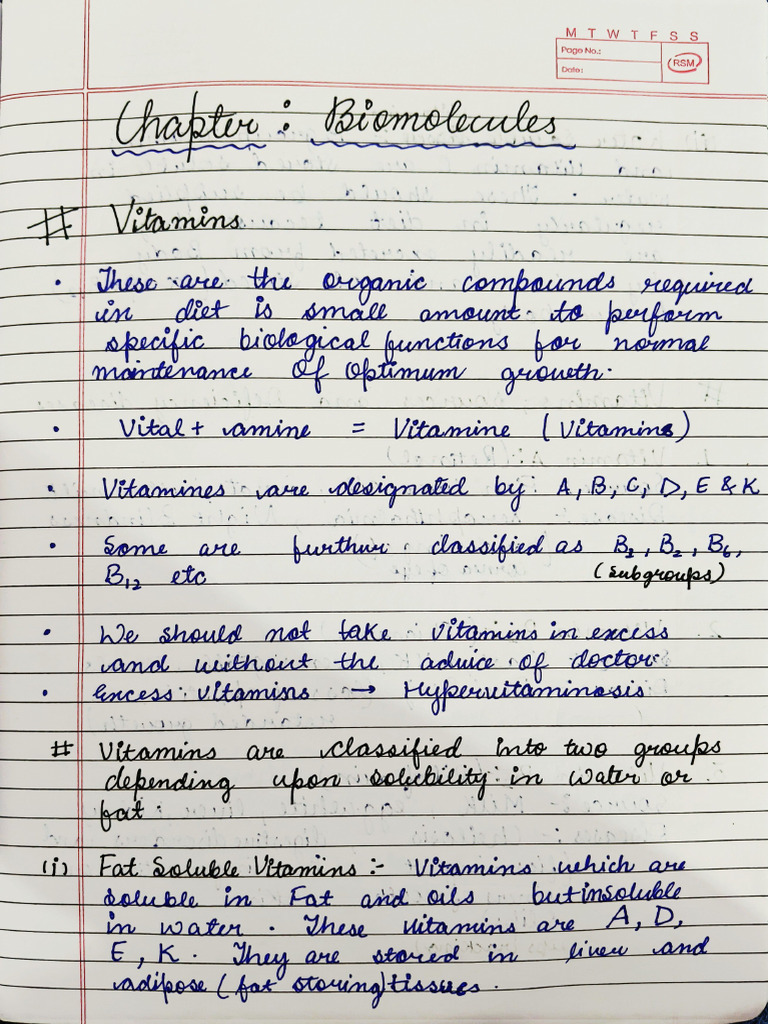 M T W T F S S
Page No.:
Date:
RSM
Chapter : Biomolecules
# Vitamins
• These are the organic compounds required
in diet is small amount to perform
specific biological functions for normal
maintenance of optimum growth.
• Vital + amine = Vitamine (Vitamins)
• Vitamines are designated by A, B, C, D, E & K
• Some are furthur classified as B1, B2, B6,
B12 etc (subgroups)
• We should not take vitamins in excess
and without the advice of doctor.
• Excess vitamins → Hypervitaminosis
# Vitamins are classified into two groups
depending upon solubility in water or
fat.
(i) Fat Soluble Vitamins :- Vitamins which are
soluble in Fat and oils but insoluble
in water. These vitamins are A, D,
E, K. They are stored in liver and
adipose (fat storing) tissues.